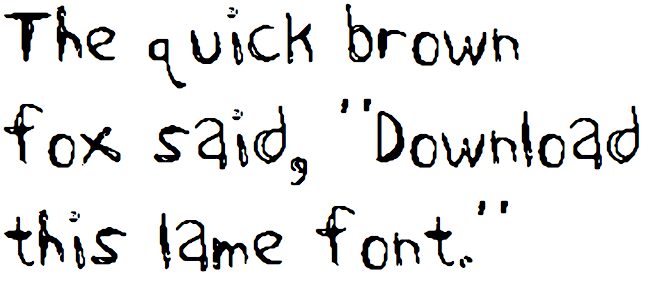 The quick brown
fox said, "Download
this lame font."